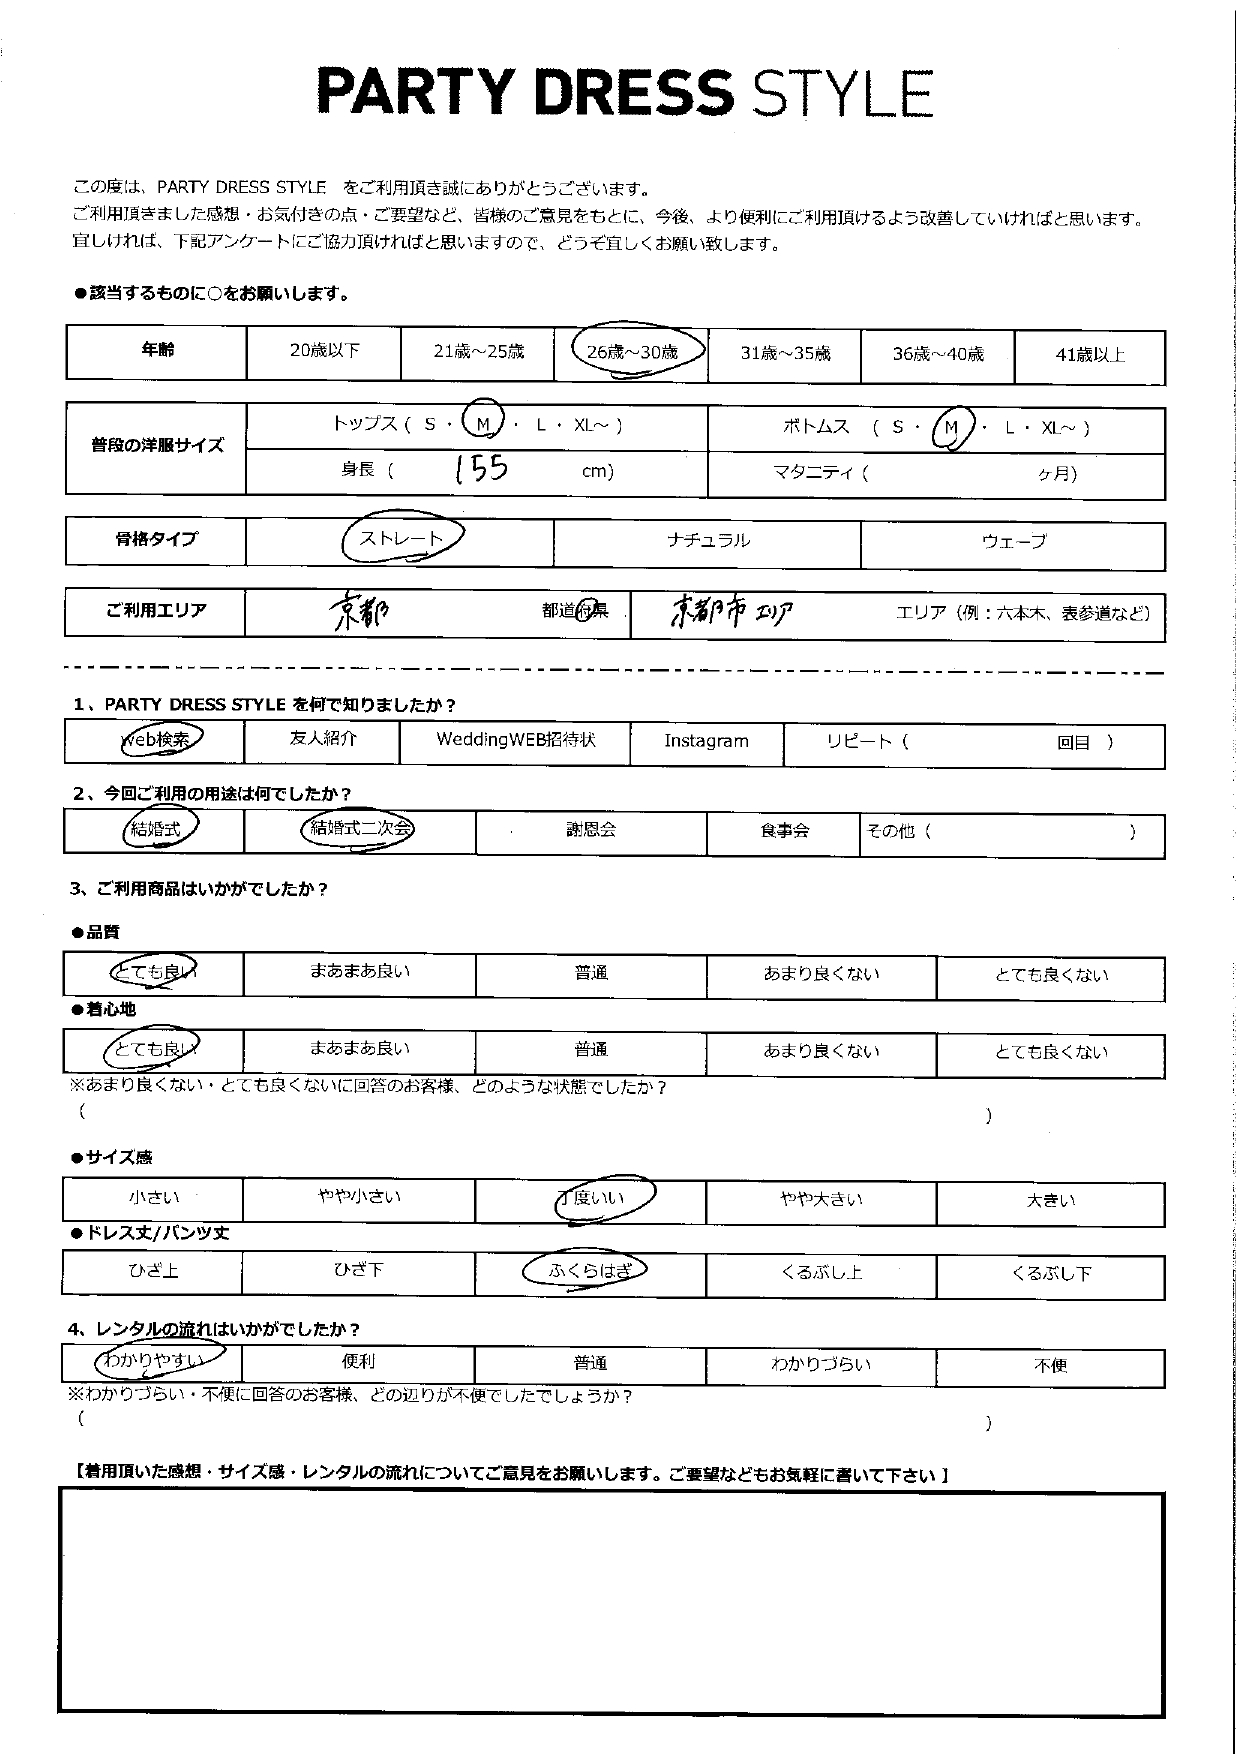 PARTY DRESS STYLE
この度は、PARTY DRESS STYLE をご利用頂き誠にありがとうございます。
ご利用頂きました感想・お気付きの点・ご要望など、皆様のご意見をもとに、今後、より便利にご利用頂けるよう改善していければと思います。
宜しければ、下記アンケートにご協力頂ければと思いますので、どうぞ宜しくお願い致します。
●該当するものに○をお願いします。
年齢 20歳以下 21歳～25歳 26歳～30歳 31歳～35歳 36歳～40歳 41歳以上
普段の洋服サイズ
トップス ( S ・ M ・ L ・ XL～ ) ボトムス ( S ・ M ・ L ・ XL～ )
身長 ( 155 cm) マタニティ ( ヶ月)
骨格タイプ ストレート ナチュラル ウェーブ
ご利用エリア 京都 都道府県 京都市エリア エリア（例：六本木、表参道など）
1、PARTY DRESS STYLE を何で知りましたか？
web検索 友人紹介 WeddingWEB招待状 Instagram リピート ( 回目 )
2、今回ご利用の用途は何でしたか？
結婚式 結婚式二次会 謝恩会 食事会 その他 ( )
3、ご利用商品はいかがでしたか？
●品質
とても良い まあまあ良い 普通 あまり良くない とても良くない
●着心地
とても良い まあまあ良い 普通 あまり良くない とても良くない
※あまり良くない・とても良くないに回答のお客様、どのような状態でしたか？
( )
●サイズ感
小さい やや小さい 丁度いい やや大きい 大きい
●ドレス丈/パンツ丈
ひざ上 ひざ下 ふくらはぎ くるぶし上 くるぶし下
4、レンタルの流れはいかがでしたか？
わかりやすい 便利 普通 わかりづらい 不便
※わかりづらい・不便に回答のお客様、どの辺りが不便でしたでしょうか？
( )
【着用頂いた感想・サイズ感・レンタルの流れについてご意見をお願いします。ご要望などもお気軽に書いて下さい】